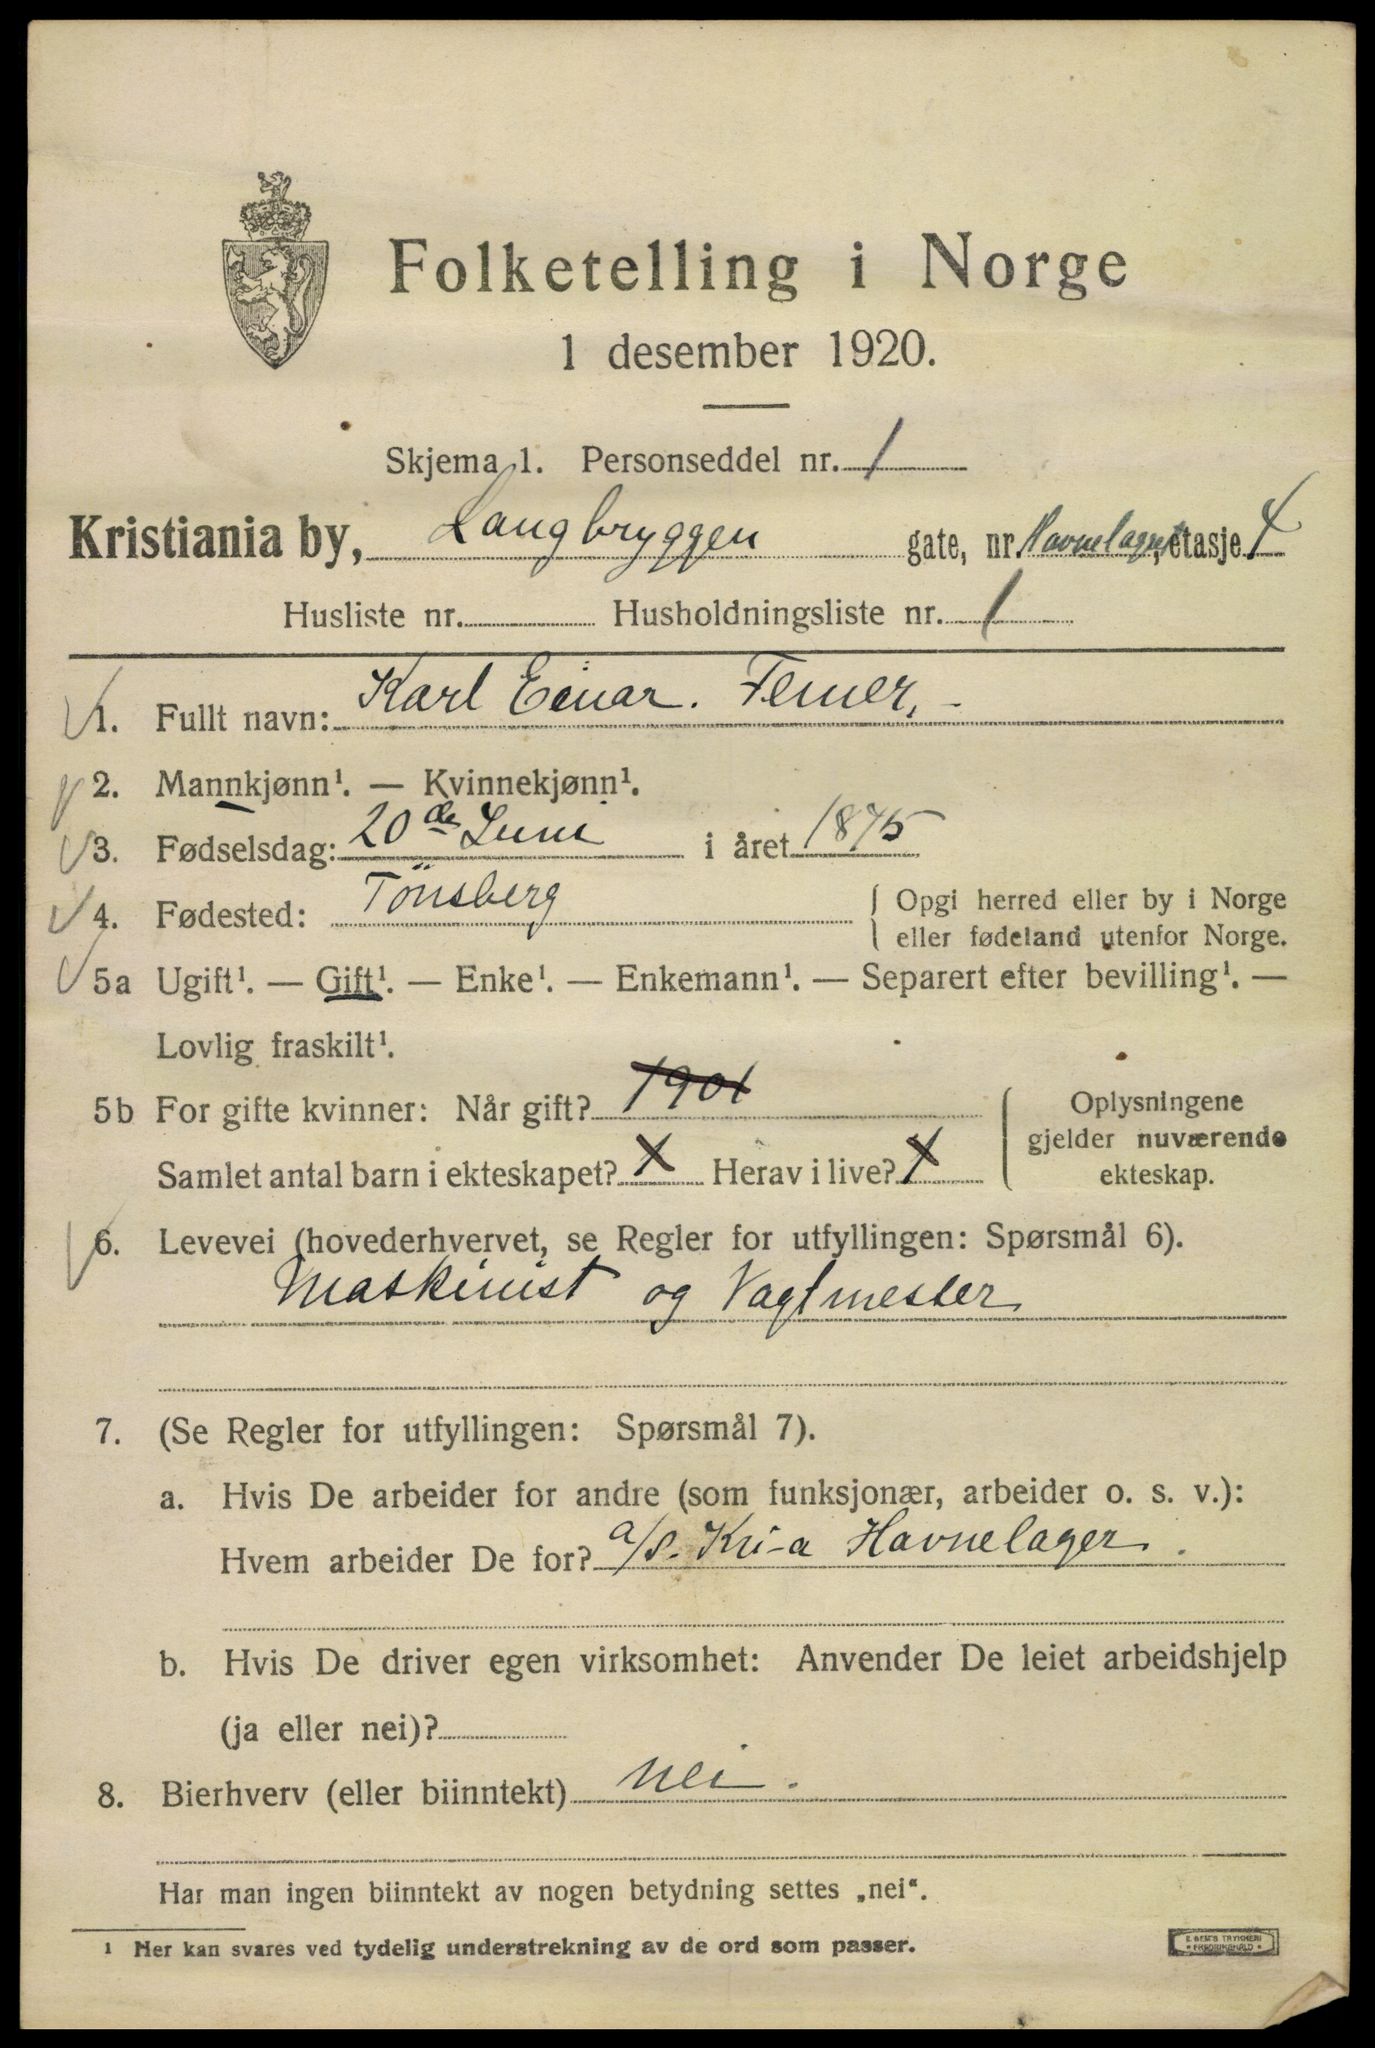 Folketelling i Norge
1 desember 1920.
Skjema 1. Personseddel nr. 1
Kristiania by, Langbryggen gate, nr. Havnelageret, etasje 4
Husliste nr. Husholdningsliste nr. 1
1. Fullt navn: Karl Einar. Femer.
2. Mannkjønn¹. — Kvinnekjønn¹.
3. Fødselsdag: 20de Juni i året 1875
4. Fødested: Tönsberg Opgi herred eller by i Norge
eller fødeland utenfor Norge.
5a Ugift¹. — Gift¹. — Enke¹. — Enkemann¹. — Separert efter bevilling¹. —
Lovlig fraskilt¹.
5b For gifte kvinner: Når gift? 1901 Oplysningene
gjelder nuværende
Samlet antal barn i ekteskapet? X Herav i live? X ekteskap.
6. Levevei (hovederhvervet, se Regler for utfyllingen: Spørsmål 6).
Maskinist og Vagtmester
7. (Se Regler for utfyllingen: Spørsmål 7).
a. Hvis De arbeider for andre (som funksjonær, arbeider o. s. v.):
Hvem arbeider De for? a/s. Kri-a Havnelager.
b. Hvis De driver egen virksomhet: Anvender De leiet arbeidshjelp
(ja eller nei)?
8. Bierhverv (eller biinntekt) nei.
Har man ingen biinntekt av nogen betydning settes „nei“.
¹ Her kan svares ved tydelig understrekning av de ord som passer.
TRYKKERI
FREDRIKSHALD